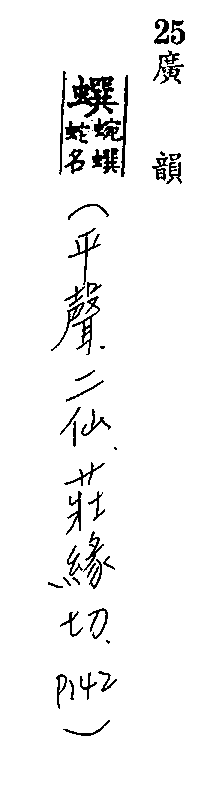 25廣韻
蟤蜿蟤蛇名(平聲.二仙.莊緣切.P142)